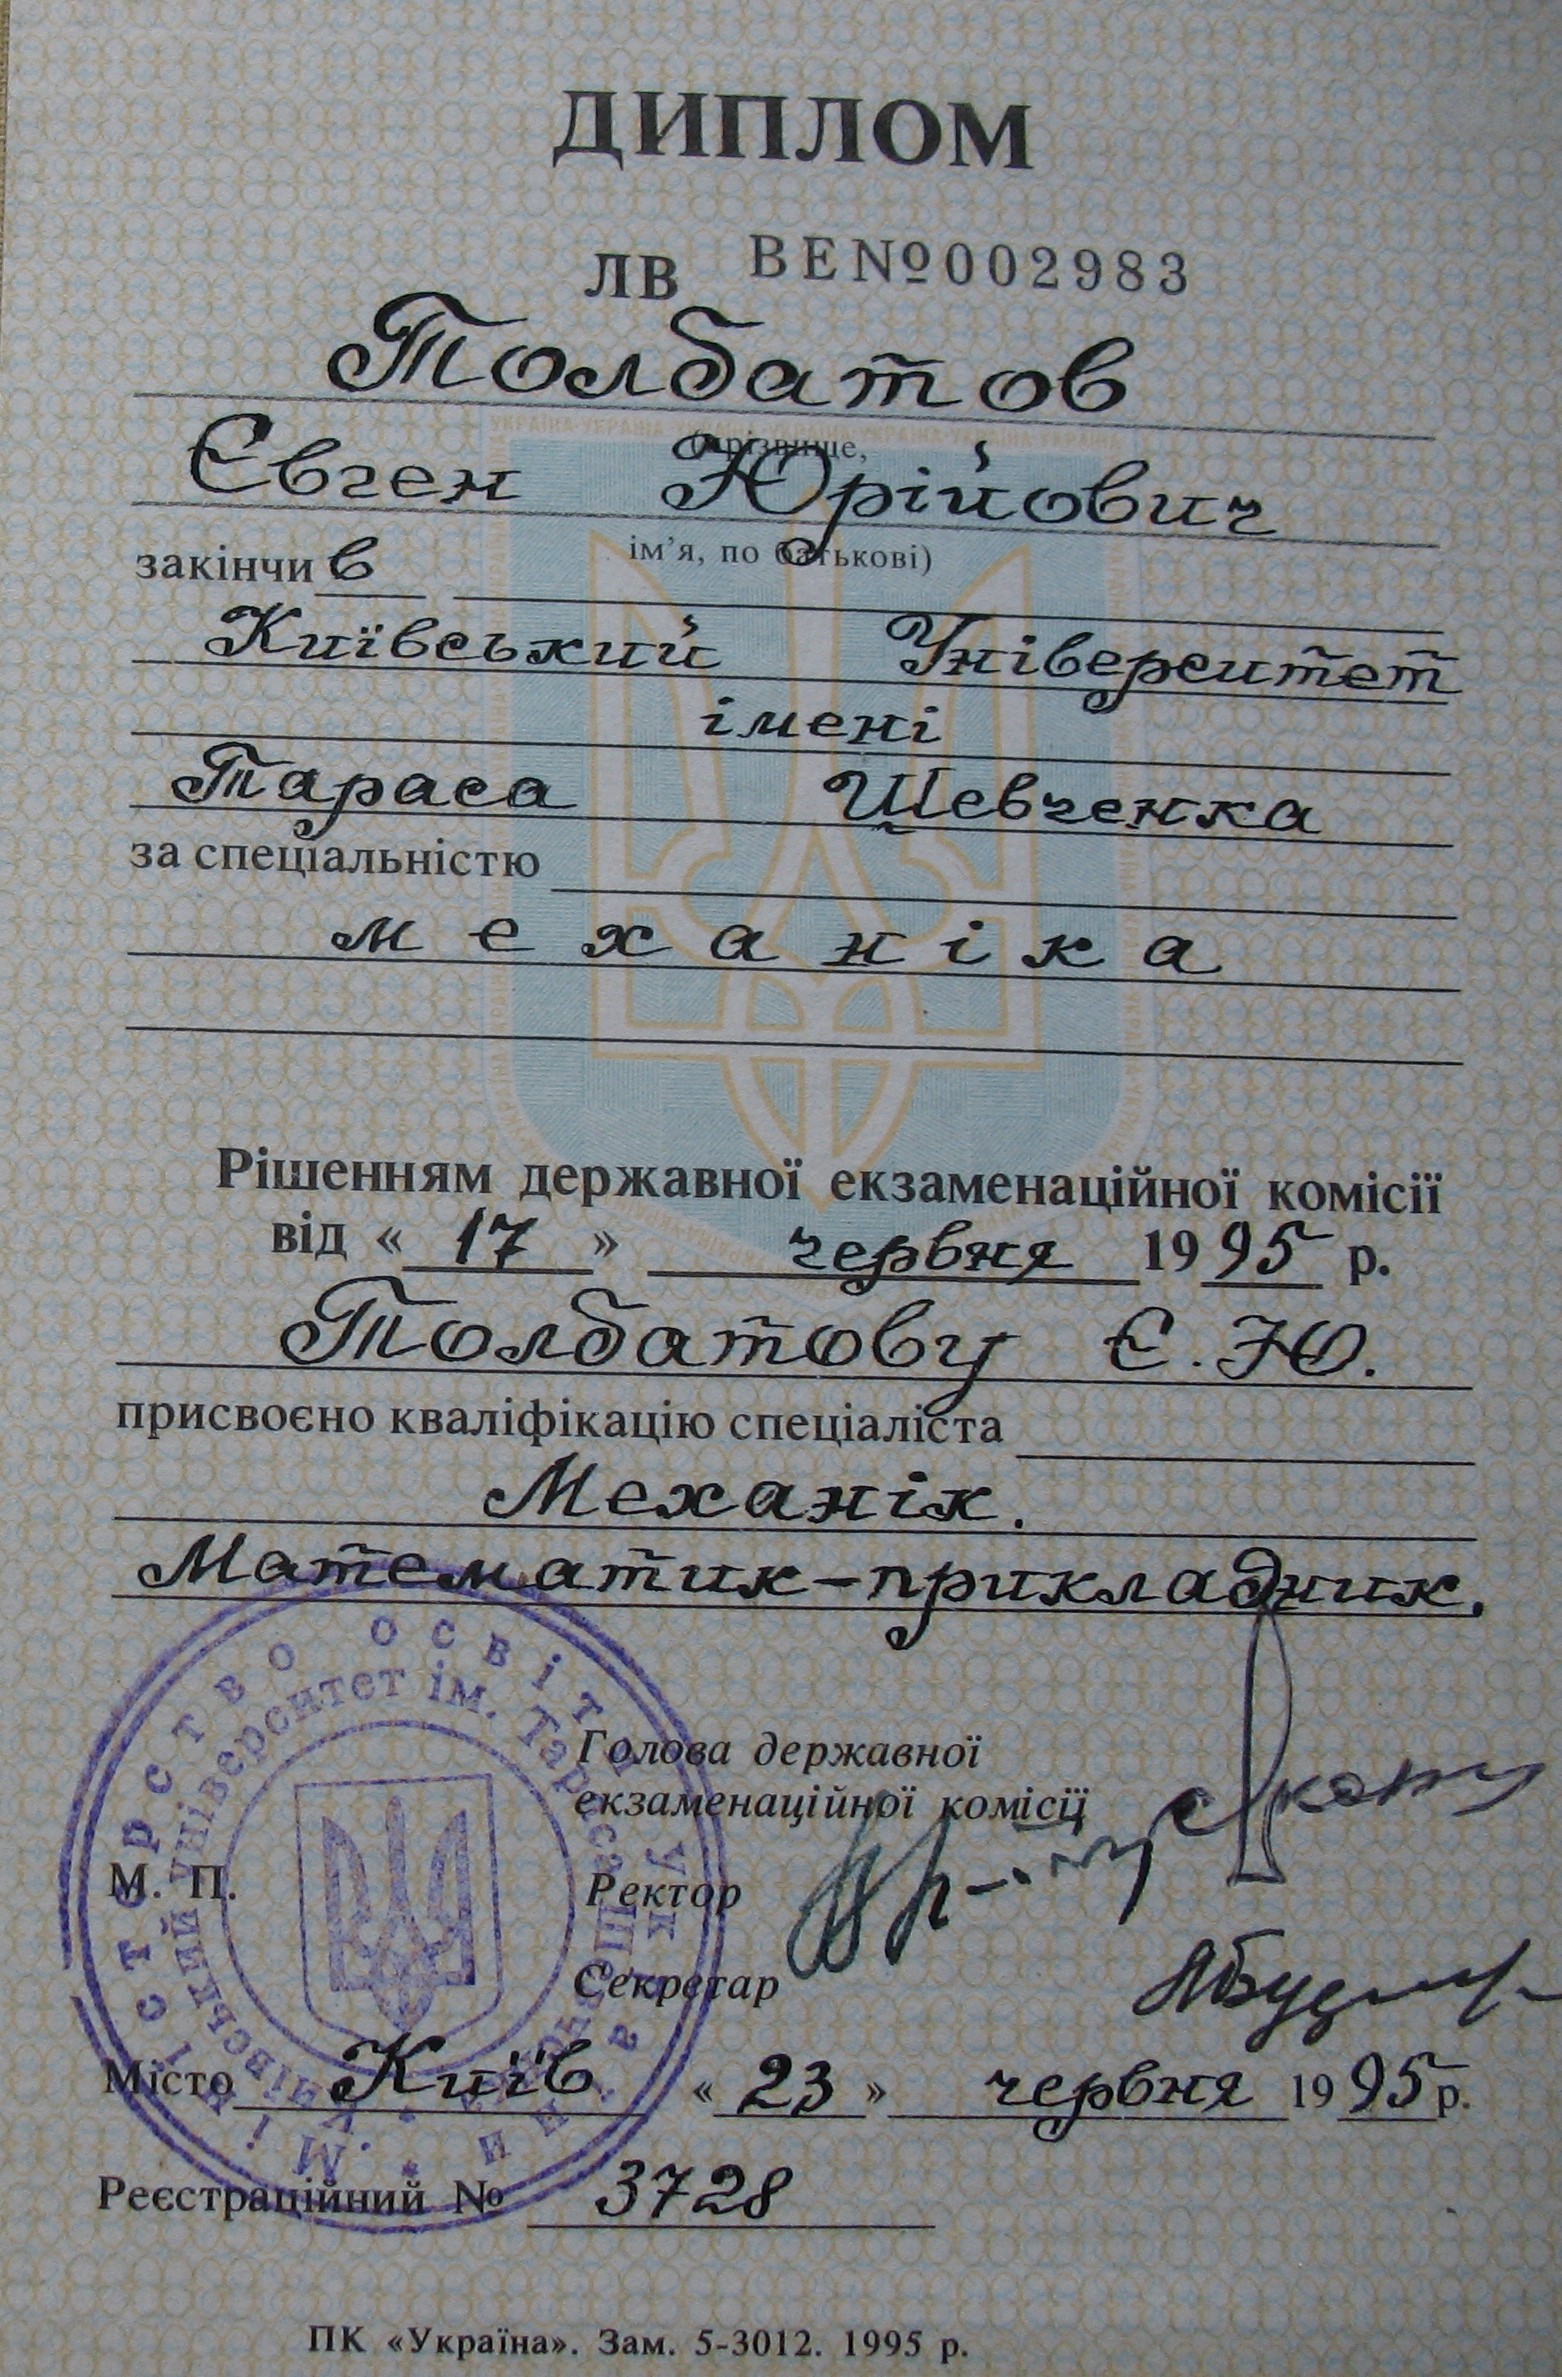 ДИПЛОМ
ЛВ ВЕ№002983
Толбатов
(прізвище,
Євген Юрійович
ім’я, по батькові)
закінчив
Київський Університет
імені
Тараса Шевченка
за спеціальністю
механіка
Рішенням державної екзаменаційної комісії
від « 17 » червня 1995 р.
Толбатову Є.Ю.
присвоєно кваліфікацію спеціаліста
Механік.
Математик-прикладник.
Голова державної
екзаменаційної комісії
М. П.
Ректор
Секретар
Місто Київ « 23 » червня 1995 р.
Реєстраційний № 3728
ПК «Україна». Зам. 5-3012. 1995 р.
Міністерство освіти України
Київський університет ім. Тараса Шевченка